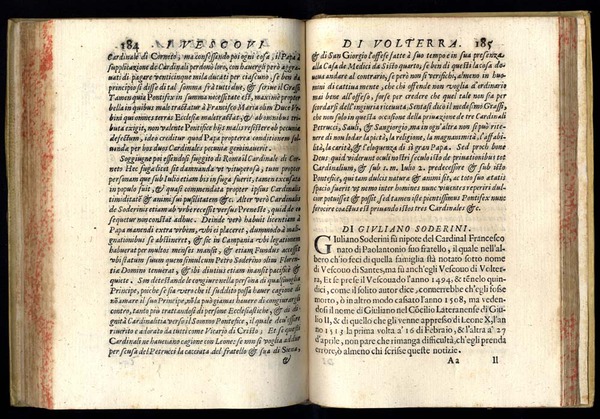 184 I VESCOVI
Cardinale di Corneto, ma confessando poi ogni cosa, il Papa à
supplicatione de Cardinali perdonò loro, con havergli però aggra-
uati di pagare venticinque mila ducati per ciascuno, se ben da
principio si disse di tal somma frà tutti due, & scriue il Grassi
Tamen quia Pontifex in summa necessitate est, maximè propter
bella in quibus maletractatur à Francisco Maria olim Duce Vrbini
qui omnes terras Ecclesiæ maletractat, & ab omnibus tri-
buta exigit, non valente Pontifice his malis resistere ob pecuniæ
defectum, ideò creditur quod Papa propterea conditionem subeun-
da per hos duos Cardinales pecunia geminauerit.
Soggiugne poi essendosi fuggito di Roma il Cardinale di Cor-
neto Hæc fuga licet sit damnanda et vituperosa, tum propter
personam quæ sub Iulio etiam bis in fuga fuerit, tamen excusata
in populo fuit, & quasi commendata propter ipsius Cardinalis
timiditatem & animi sui pusilitatem &c. Alter verò Cardinalis
de Soderinis etiam ab vrbe recessit versus Preneste, quid de eo
sequetur non constat adhuc. Deinde verò habuit licentiam à
Papa manendi extra vrbem, vbi ei placeret, dummodo à ma-
gnationibus se abstineret, & sic in Campania vbi legationem
habuerat per multos menses mansit, & etiam Fundus accessit
vbi statum suum quem simul cum Petro Soderino olim Florentiæ
Domino tenuerat, & ibi diutius etiam mansit pacificè &
quietè. Son detestande le congiure nella persona di qualsivoglia
Principe, poiche se sia vero che il suddito possa hauer cagione di
disamare il suo Principe, nò la può giamas hauere di congiurargli
contro, tanto più trattandosi di persone Ecclesiastiche, & di di-
gnità Cardinalitia verso il Sommo Pontefice, il quale deu'essere
riuerito e adorato da tutti come Vicario di Christo; Et se questi
Cardinali ne haueuano cagione con Leone: se non si voglia addur
per scusa del Petrucci la cacciata del fratello & sua di Siena,
&
DI VOLTERRA. 185
& di San Giorgio l'offese fatte à suo tempo e in sua presenza
alla Casa de Medici da Sisto quarto, se ben di questi la cosa do-
ueua andare al contrario, se però non si verifichi, almeno in huo-
mini di cattiua mente, che chi offende non voglia d'ordinario
mai bene all'offeso, forse per credere che quel tale non sia per
scordarsi dell'ingiuria riceuuta. Sentasi dico il medesimo Grassi,
che non solo in questa occasione della priuatione de tre Cardinali
Petrucci, Sauli, & Sangiorgio, ma in ogni altra non si può rite-
nere di non lodar la pietà, la religione, la magnanimità, l'affabi-
lità, la carità, & l'eloquenza di sì gran Papa. Sed proch bone
Deus: quid viderunt oculi nostri seculo isto de priuationibus tot
Cardinalium, & sub 2. m. Iulio 2. predecessore & sub isto
Pontefice, qui tam dulcis natura & animi sit, ac toto suo ætatis
spacio fuerit vt nemo inter homines nunc viuentes reperiri dul-
cior potuisset & possit sed tamen iste pientissimus Pontifex nunc
ferocire coactus est priuando istos tres Cardinales &c.
DI GIVLIANO SODERINI.
GIuliano Soderini fù nipote del Cardinal Francesco
nato di Paolantonio suo fratello, il quale nell'al-
bero ch'io feci di quella famiglia stà notato sotto nome
di Vescouo di Santes, ma fù anch'egli Vescouo di Volter-
ra, Et se prese il Vescouado l'anno 1494. & tènelo quin-
dici, come il solito autor dice, conuerrebbe ch'egli fosse
morto, ò in altro modo cassato l'anno 1508, ma veden-
dosi il nome di Giuliano nel Còcilio Lateranense di Giu-
lio II, & di quello che gli venne appresso di Leone X, l'an-
no 1513 la prima volta a' 16 di Febraio, & l'altra a' 27
d'aprile, non pare che rimanga difficultà, ch'egli prenda
errore, ò almeno chi scrisse queste notizie.
Aa Il